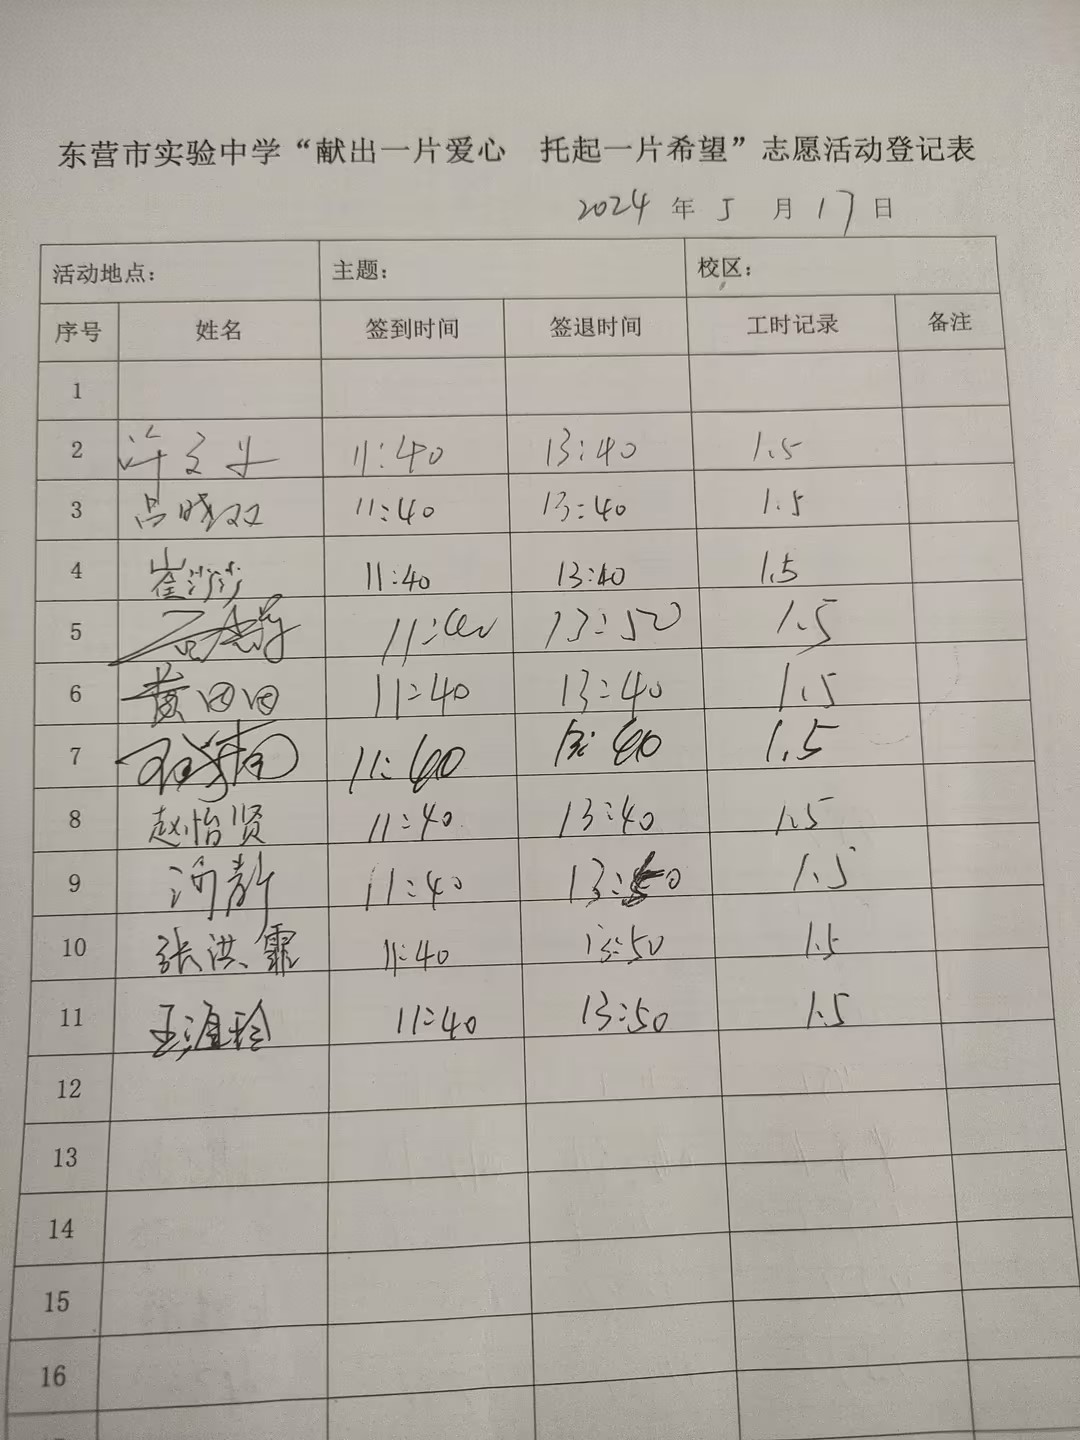 东营市实验中学“献出一片爱心 托起一片希望”志愿活动登记表
2024 年 5 月 17 日
活动地点： 主题： 校区：
序号 姓名 签到时间 签退时间 工时记录 备注
1
2 许文 11:40 13:40 1.5
3 吕晓双 11:40 13:40 1.5
4 崔莎莎 11:40 13:40 1.5
5 11:40 13:50 1.5
6 黄田田 11:40 13:40 1.5
7 11:40 13:40 1.5
8 赵怡贤 11:40 13:40 1.5
9 11:40 13:50 1.5
10 张洪霏 11:40 13:50 1.5
11 王 玲 11:40 13:50 1.5
12
13
14
15
16